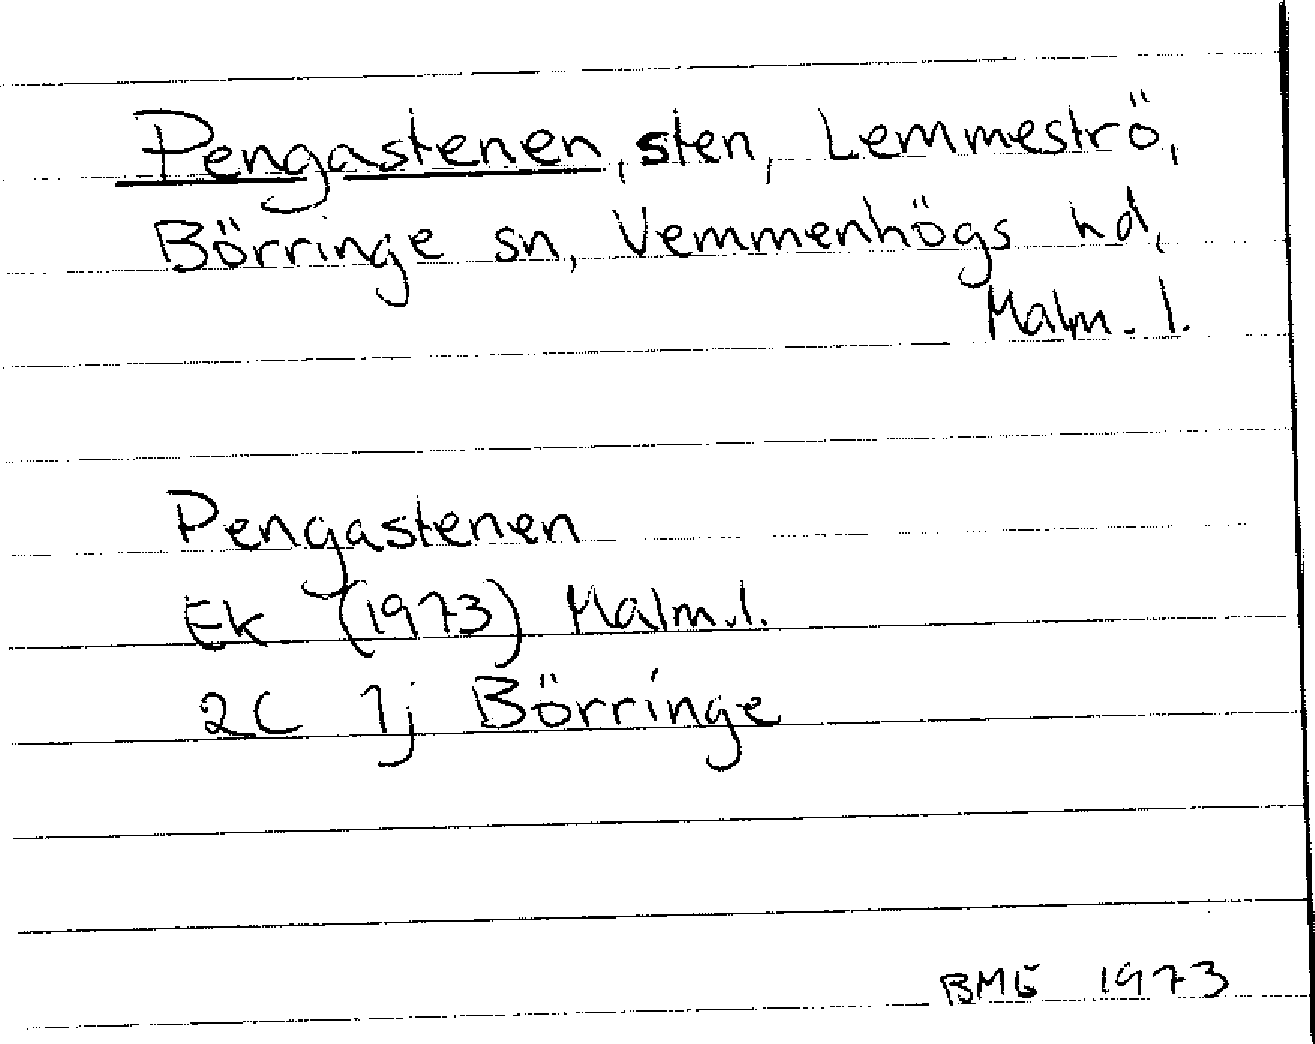 Pengastenen, sten, Lemmeströ,
Börringe sn, Vemmenhögs hd,
Malm. l.
Pengastenen
Ek (1973) Malm.l.
2C 1j Börringe
BME 1973